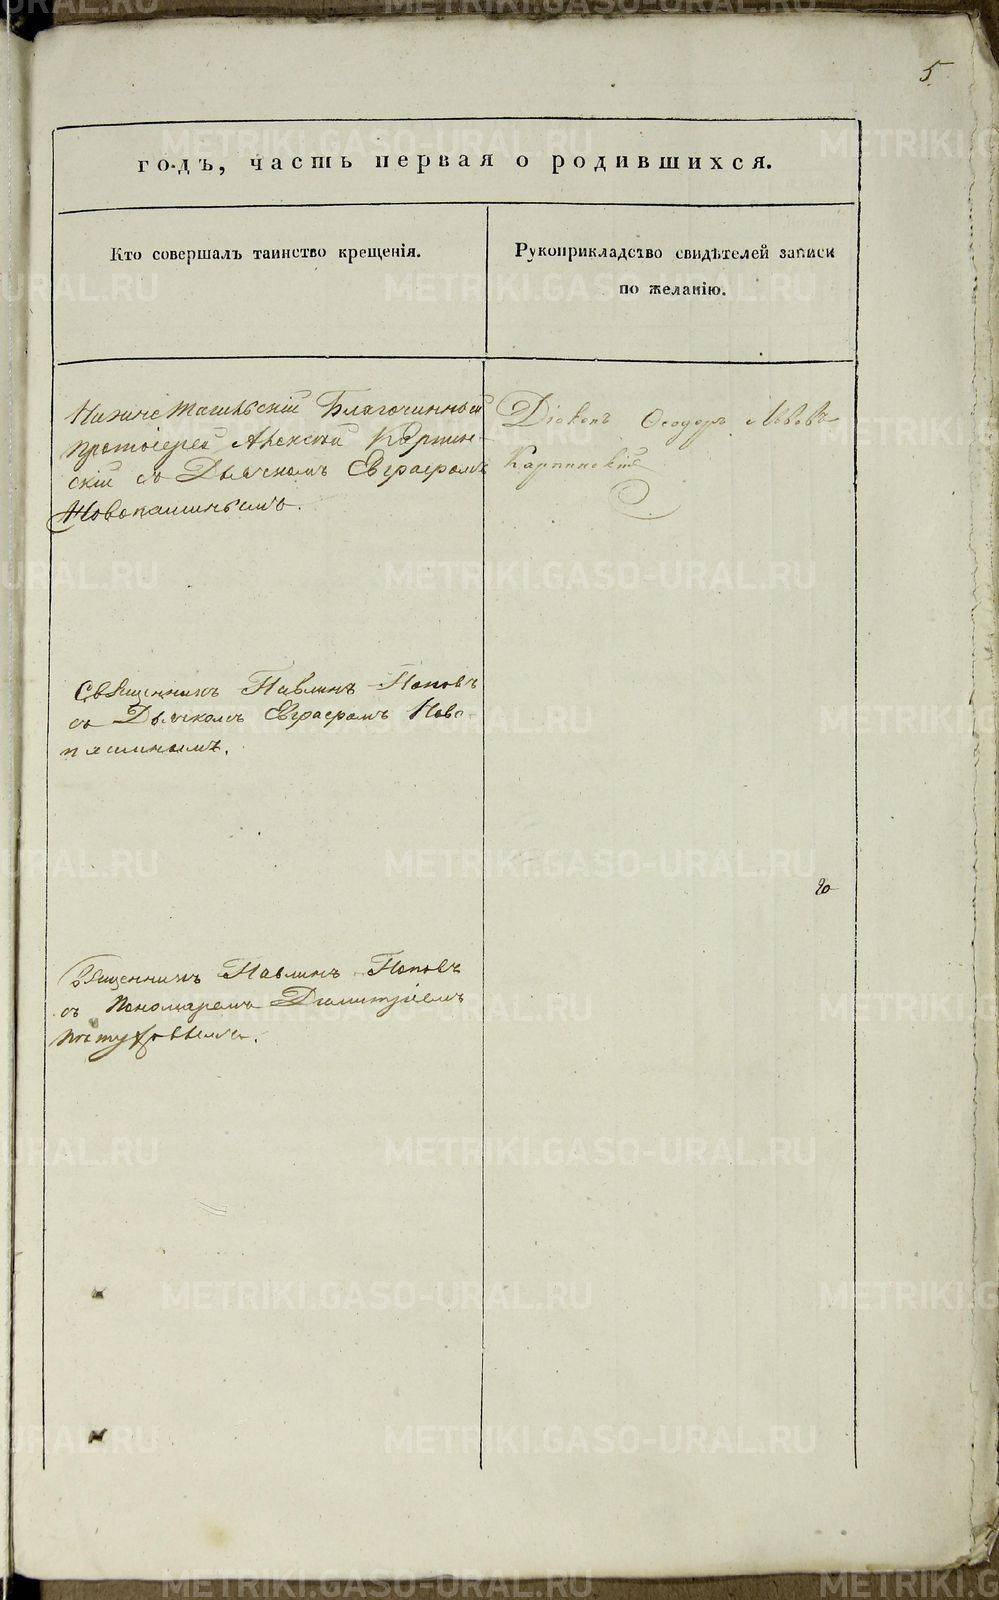 5.
годъ, часть первая о родившихся.
Кто совершалъ таинство крещенія.
Рукоприкладство свидѣтелей записи
по желанію.
Нижнетагильскій Благочинный
Протоіерей Алексій Карпин-
скій съ Дьячкомъ Евграфомъ
Новопашинымъ.
Діаконъ Ѳеодоръ Львовъ
Карпинскій
Священникъ Павлинъ Поповъ
съ Дьячкомъ Евграфомъ Ново-
пашинымъ.
Священникъ Павлинъ Поповъ
съ Пономаремъ Димитріемъ
Пѣтуховымъ.
METRIKI.GASO-URAL.RU